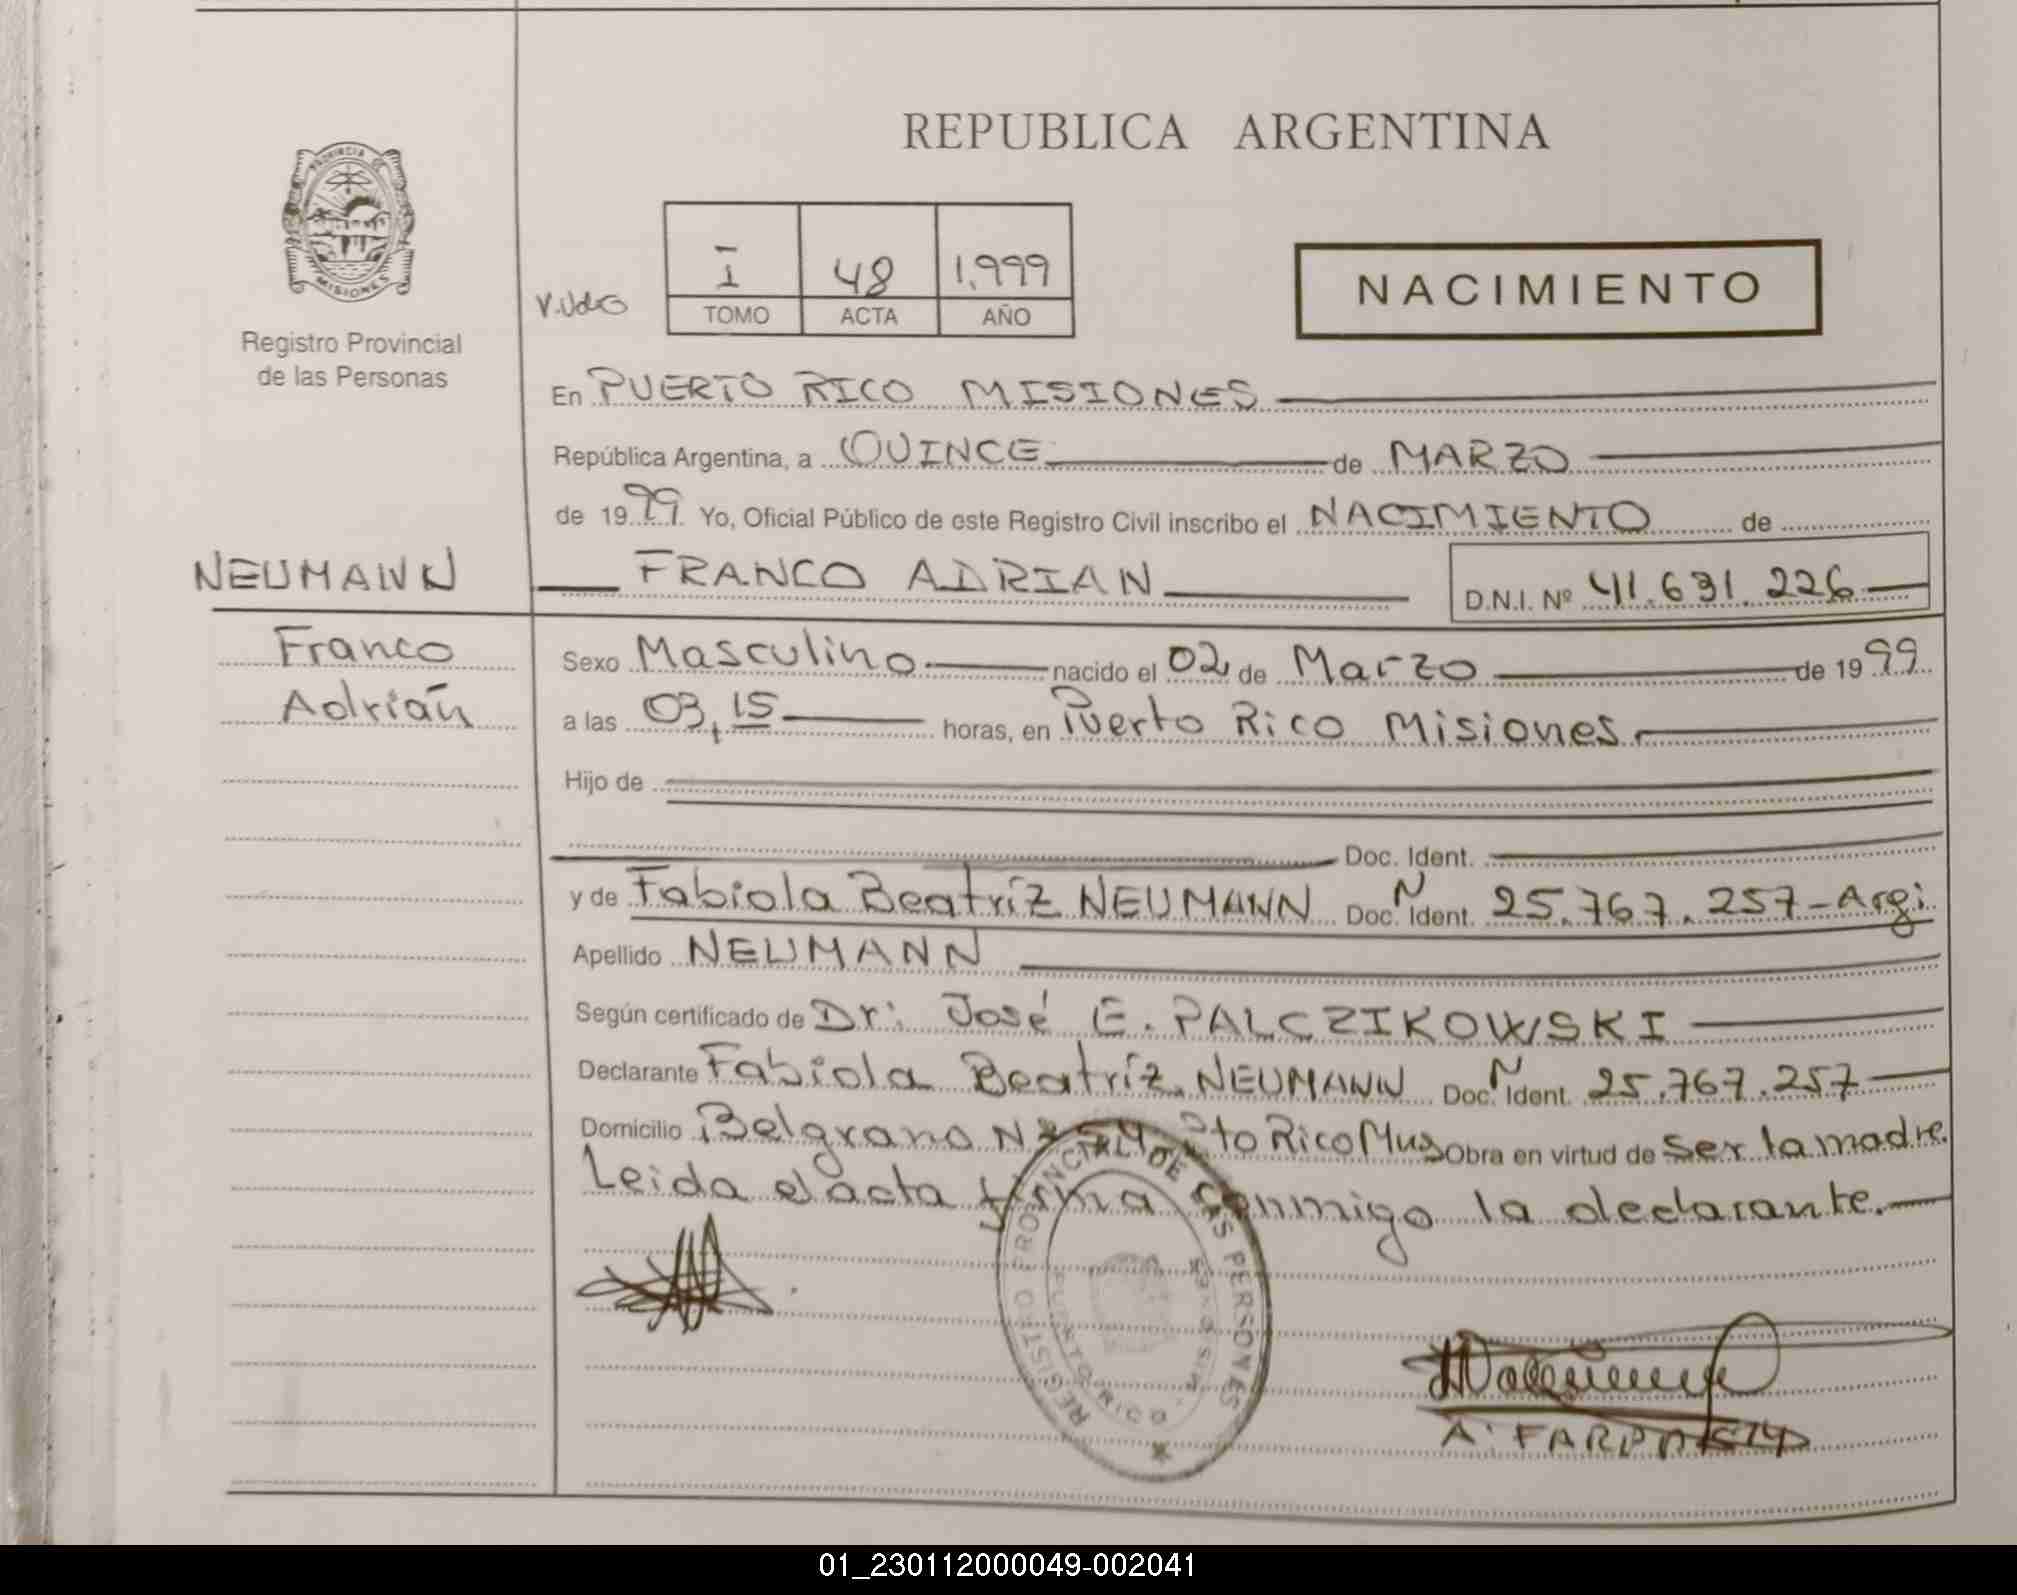 REPUBLICA ARGENTINA
PROVINCIA DE
MISIONES
Registro Provincial
de las Personas
I 48 1.999
TOMO ACTA AÑO
NACIMIENTO
En PUERTO RICO MISIONES
República Argentina, a QUINCE de MARZO
de 1999 Yo, Oficial Público de este Registro Civil inscribo el NACIMIENTO de
NEUMANN
FRANCO ADRIAN D.N.I. Nº 41.631.226
Franco
Adrián
Sexo Masculino nacido el 02 de Marzo de 1999
a las 03,15 horas, en Puerto Rico Misiones
Hijo de
Doc. Ident.
y de Fabiola Beatríz NEUMANN Doc. N Ident. 25.767.257-Arg.
Apellido NEUMANN
Según certificado de Dr: José E. PALCZIKOWSKI
Declarante Fabiola Beatríz NEUMANN Doc. N Ident. 25.767.257
Domicilio Belgrano Pto Rico Obra en virtud de ser la madre.
Leida el acta firma conmigo la declarante.
REGISTRO PROVINCIAL DE LAS PERSONAS
PUERTO RICO - MISIONES
01_230112000049-002041